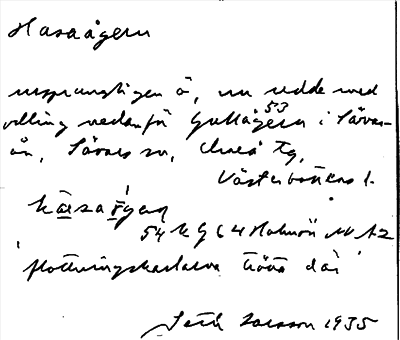 Hasaågern
ursprungligen å, nu udde med
odling nedanför Gullågern i Sävar-
53
ån, Sävars sn, Umeå tg,
Västerbottens l.
54 K G 64 Holmön NV A2
flottningskarlarna där
Seth Larsson 1935